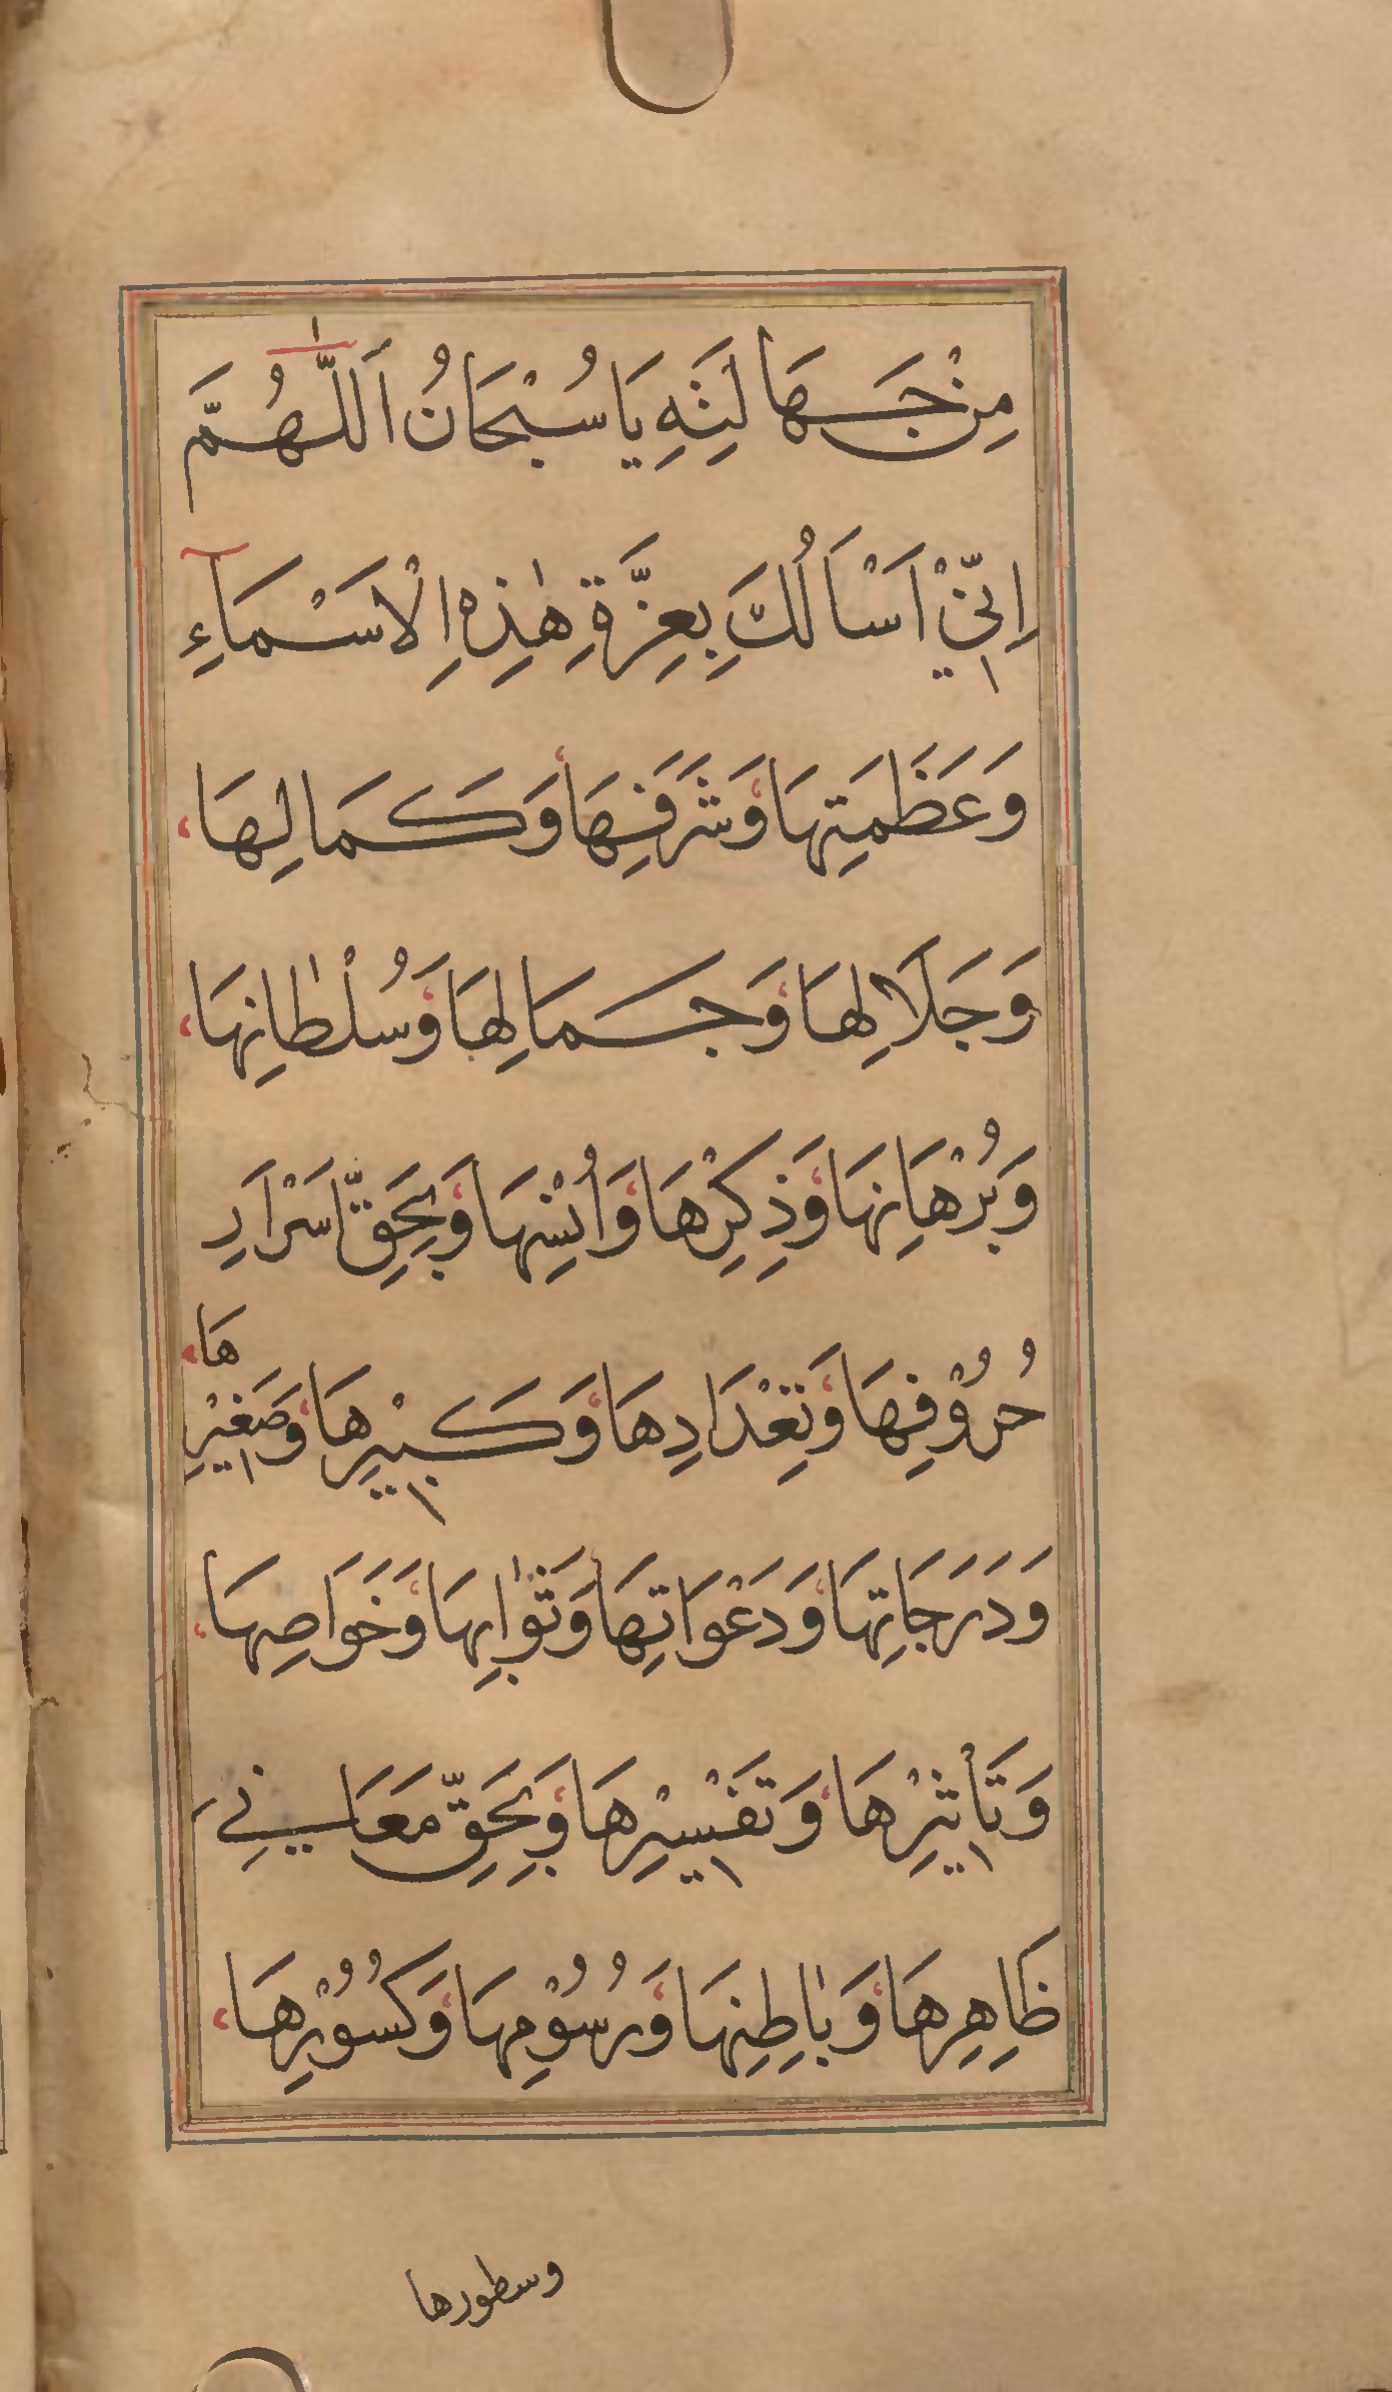 مِنْ جَهَالَتِهِ يَا سُبْحَانُ اَللّٰهُمَّ
اِنِّيْ اَسْاَلُكَ بِعِزَّةِ هٰذِهِ الْاَسْمَآءِ
وَعَظَمَتِهَا وَشَرَفِهَا وَكَمَالِهَا
وَجَلَالِهَا وَجَمَالِهَا وَسُلْطَانِهَا
وَبُرْهَانِهَا وَذِكْرِهَا وَاُنْسِهَا وَبِحَقِّ اَسْرَارِ
حُرُوْفِهَا وَتِعْدَادِهَا وَكَبِيْرِهَا وَصَغِيْرِهَا
وَدَرَجَاتِهَا وَدَعْوَاتِهَا وَثَوَابِهَا وَخَوَاصِهَا
وَتَأْثِيْرِهَا وَتَفْسِيْرِهَا وَبِحَقِّ مَعَانِي
ظَاهِرِهَا وَبَاطِنِهَا وَرُسُوْمِهَا وَكُسُوْرِهَا
وسطورها